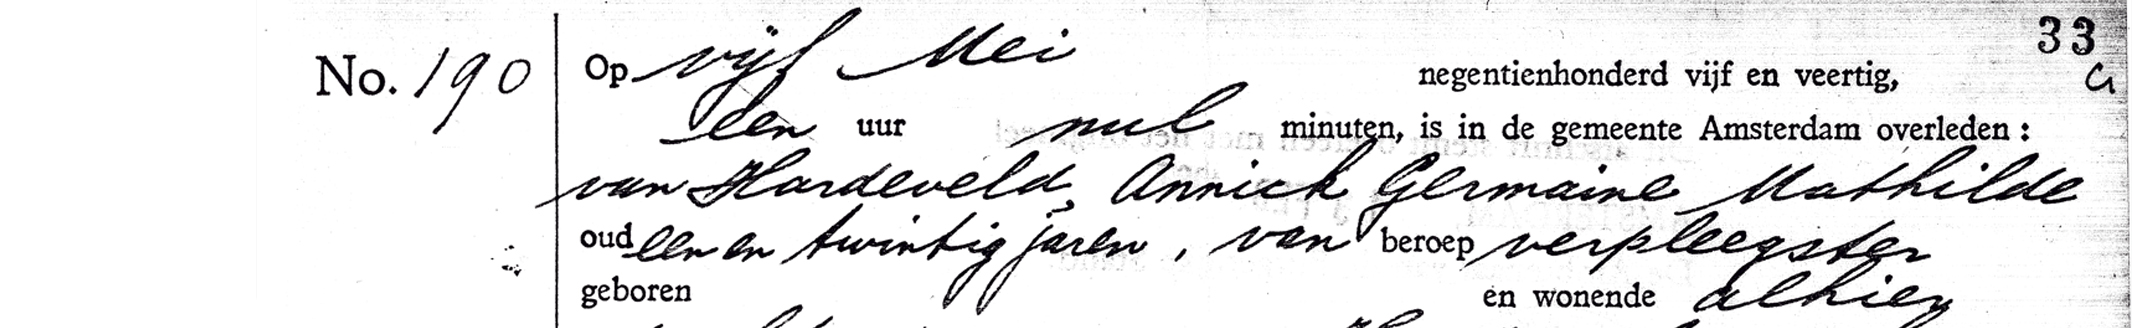 33
No. 190 Op vijf Mei negentienhonderd vijf en veertig, a
een uur nul minuten, is in de gemeente Amsterdam overleden:
van Hardeveld, Annick Germaine Mathilde
oud een en twintig jaren, van beroep verpleegster
geboren en wonende alhier